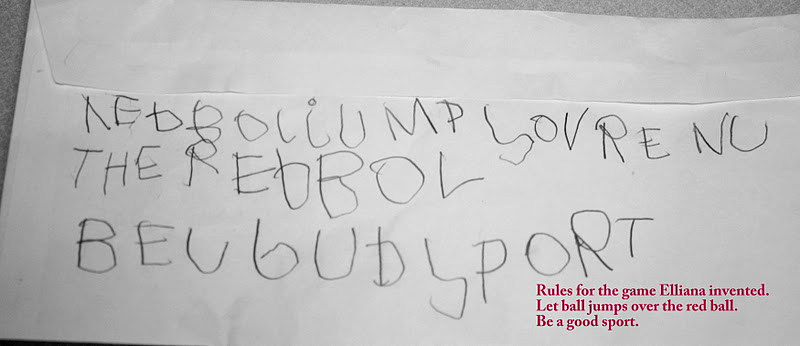 REDBOLiUMP SOVRE NU
THE REDBOL
BEU GUD SPORT
Rules for the game Elliana invented.
Let ball jumps over the red ball.
Be a good sport.